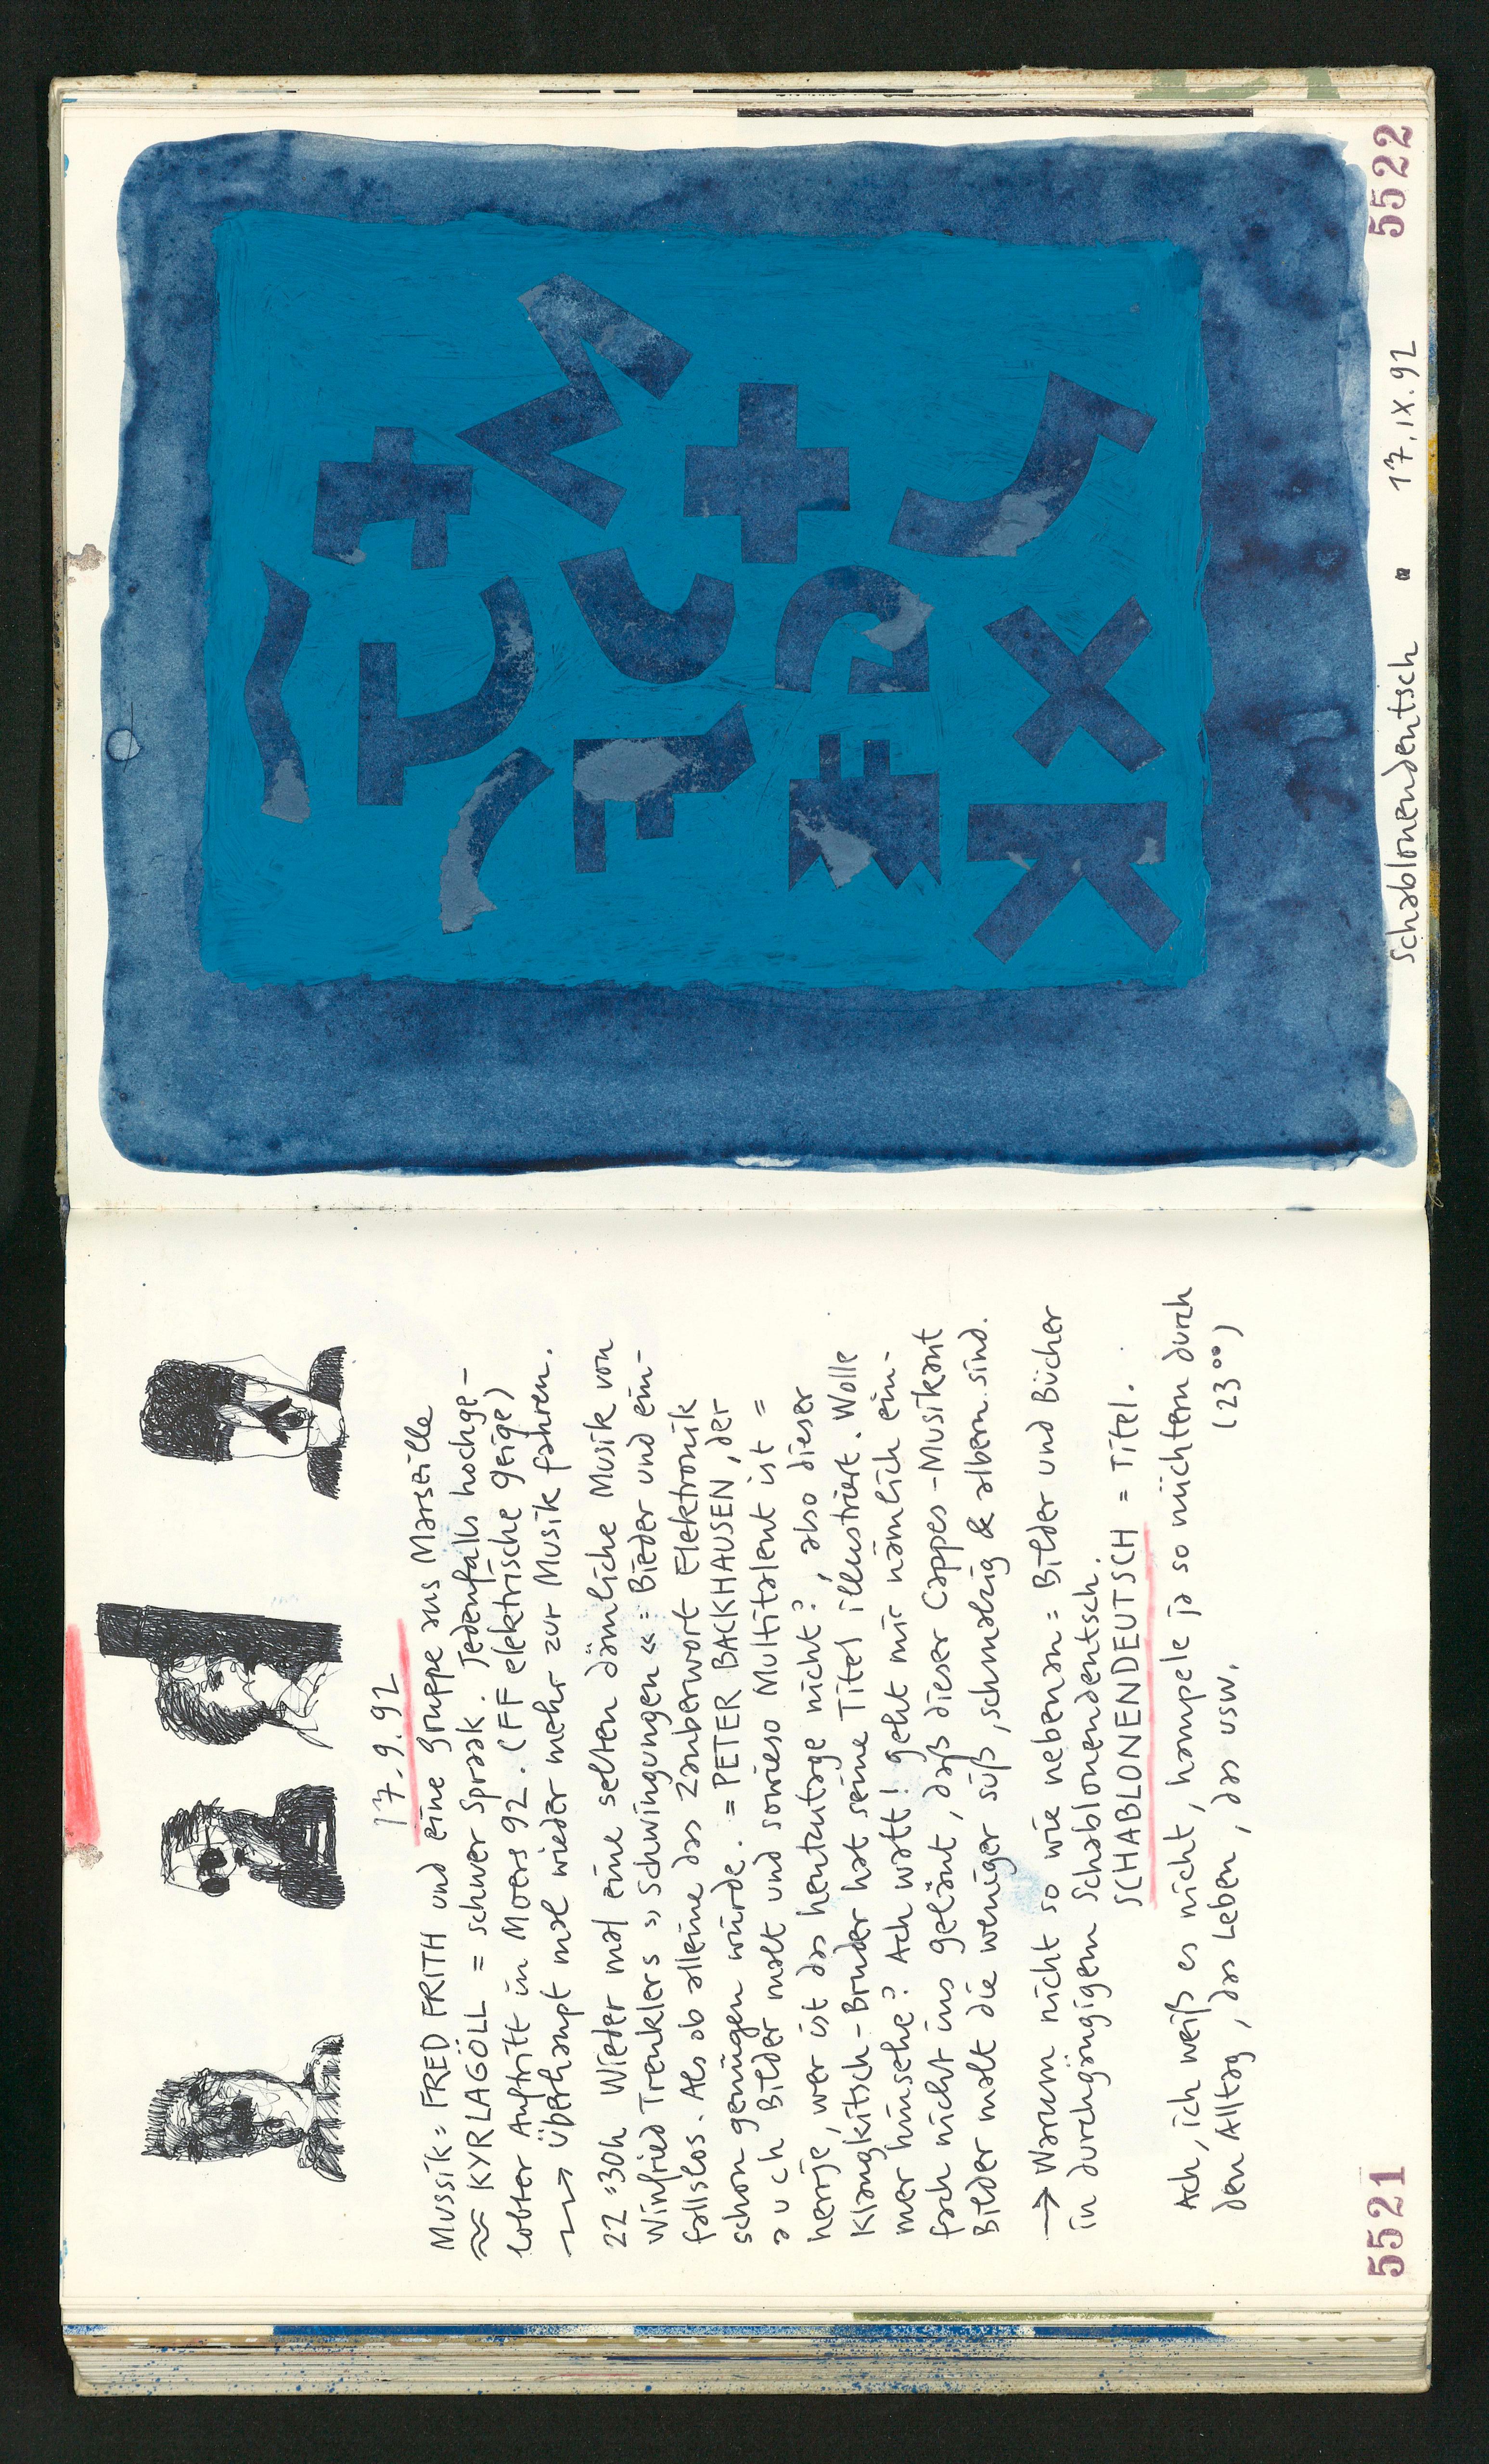 17.9.92
Mussik = FRED FRITH und eine Gruppe aus Marseille
≈ KYRLAGÖLL = schwer Spraak. Jedenfalls hochge-
lobter Auftritt in Moers 92. (FF elektrische Geige)
Überhaupt mal wieder mehr zur Musik fahren.
22:30h Wieder mal eine selten dämliche Musik von
Winfried Trenklers „Schwingungen“ = Bieder und ein-
fallslos. Als ob alleine das Zauberwort Elektronik
schon genügen würde. = PETER BACKHAUSEN, der
auch Bilder malt und sowieso Multitalent ist =
herrje, wer ist das heutzutage nicht?, also dieser
Klangkitsch-Bruder hat seine Titel illustriert. Wolle
mer hinsehe? Ach watt! Geht mir nämlich ein-
fach nicht ins Gelänt, daß dieser Cappes-Musikant
Bilder malt die weniger süß, schmalzig & albern sind.
→ Warum nicht so wie nebenan = Bilder und Bücher
in durchgängigem Schablonendeutsch.
SCHABLONENDEUTSCH = Titel.
Ach, ich weiß es nicht, hampele ja so nüchtern durch
den Alltag, das Leben, das usw. (23⁰⁰)
5521
Schablonendeutsch 17.IX.92
5522